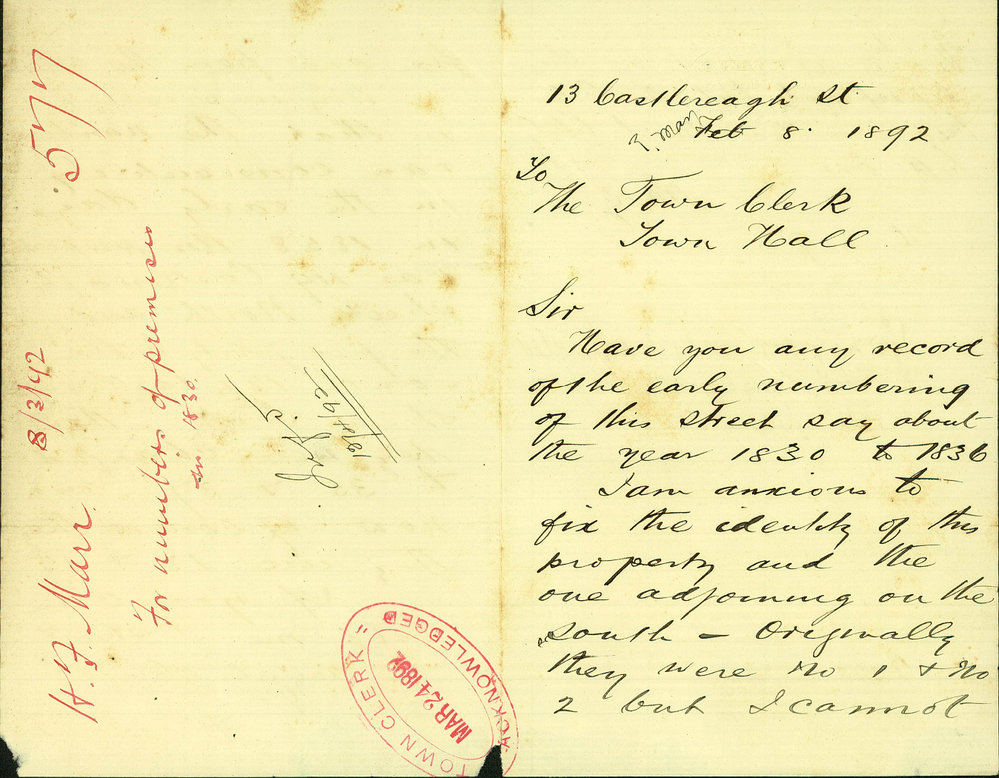 577
8/3/92
H. F. Marr
For numbers of premises
in 1830.
19/4/92
TOWN CLERK
MAR 24 1892
ACKNOWLEDGED
13 Castlereagh St
Feb 8. 1892
To
The Town Clerk
Town Hall
Sir
Have you any record
of the early numbering
of this street say about
the year 1830 to 1836
I am anxious to
fix the identity of this
property and the
one adjoining on the
south – Originally
they were No 1 & No
2 but I cannot